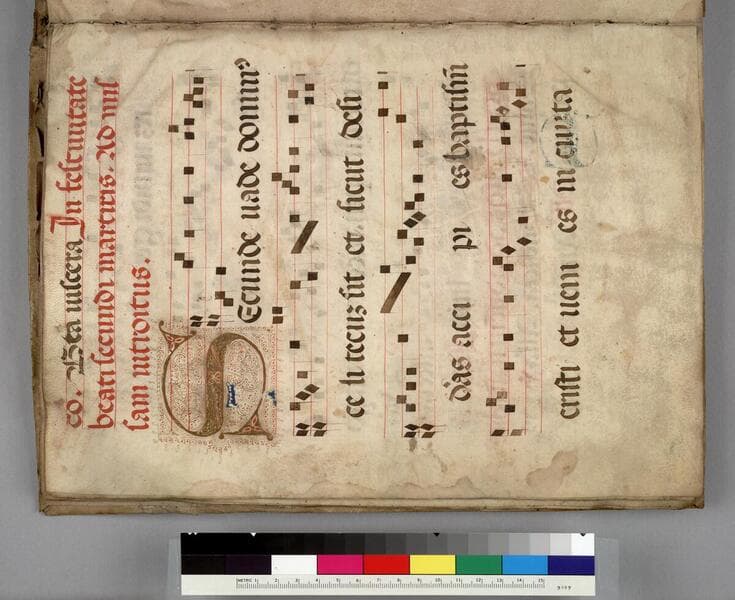 co. Bta uiscera In festiuitate
beati secundi martiris. Ad mis
sam introitus.
Secunde uade dominus
ce li tecuz sit et sicut desi
d'as acci pi es baptism̄
cristi et ueni es in cunta
METRIC 1 2 3 4 5 6 7 8 9 10 11 12 13 14 15